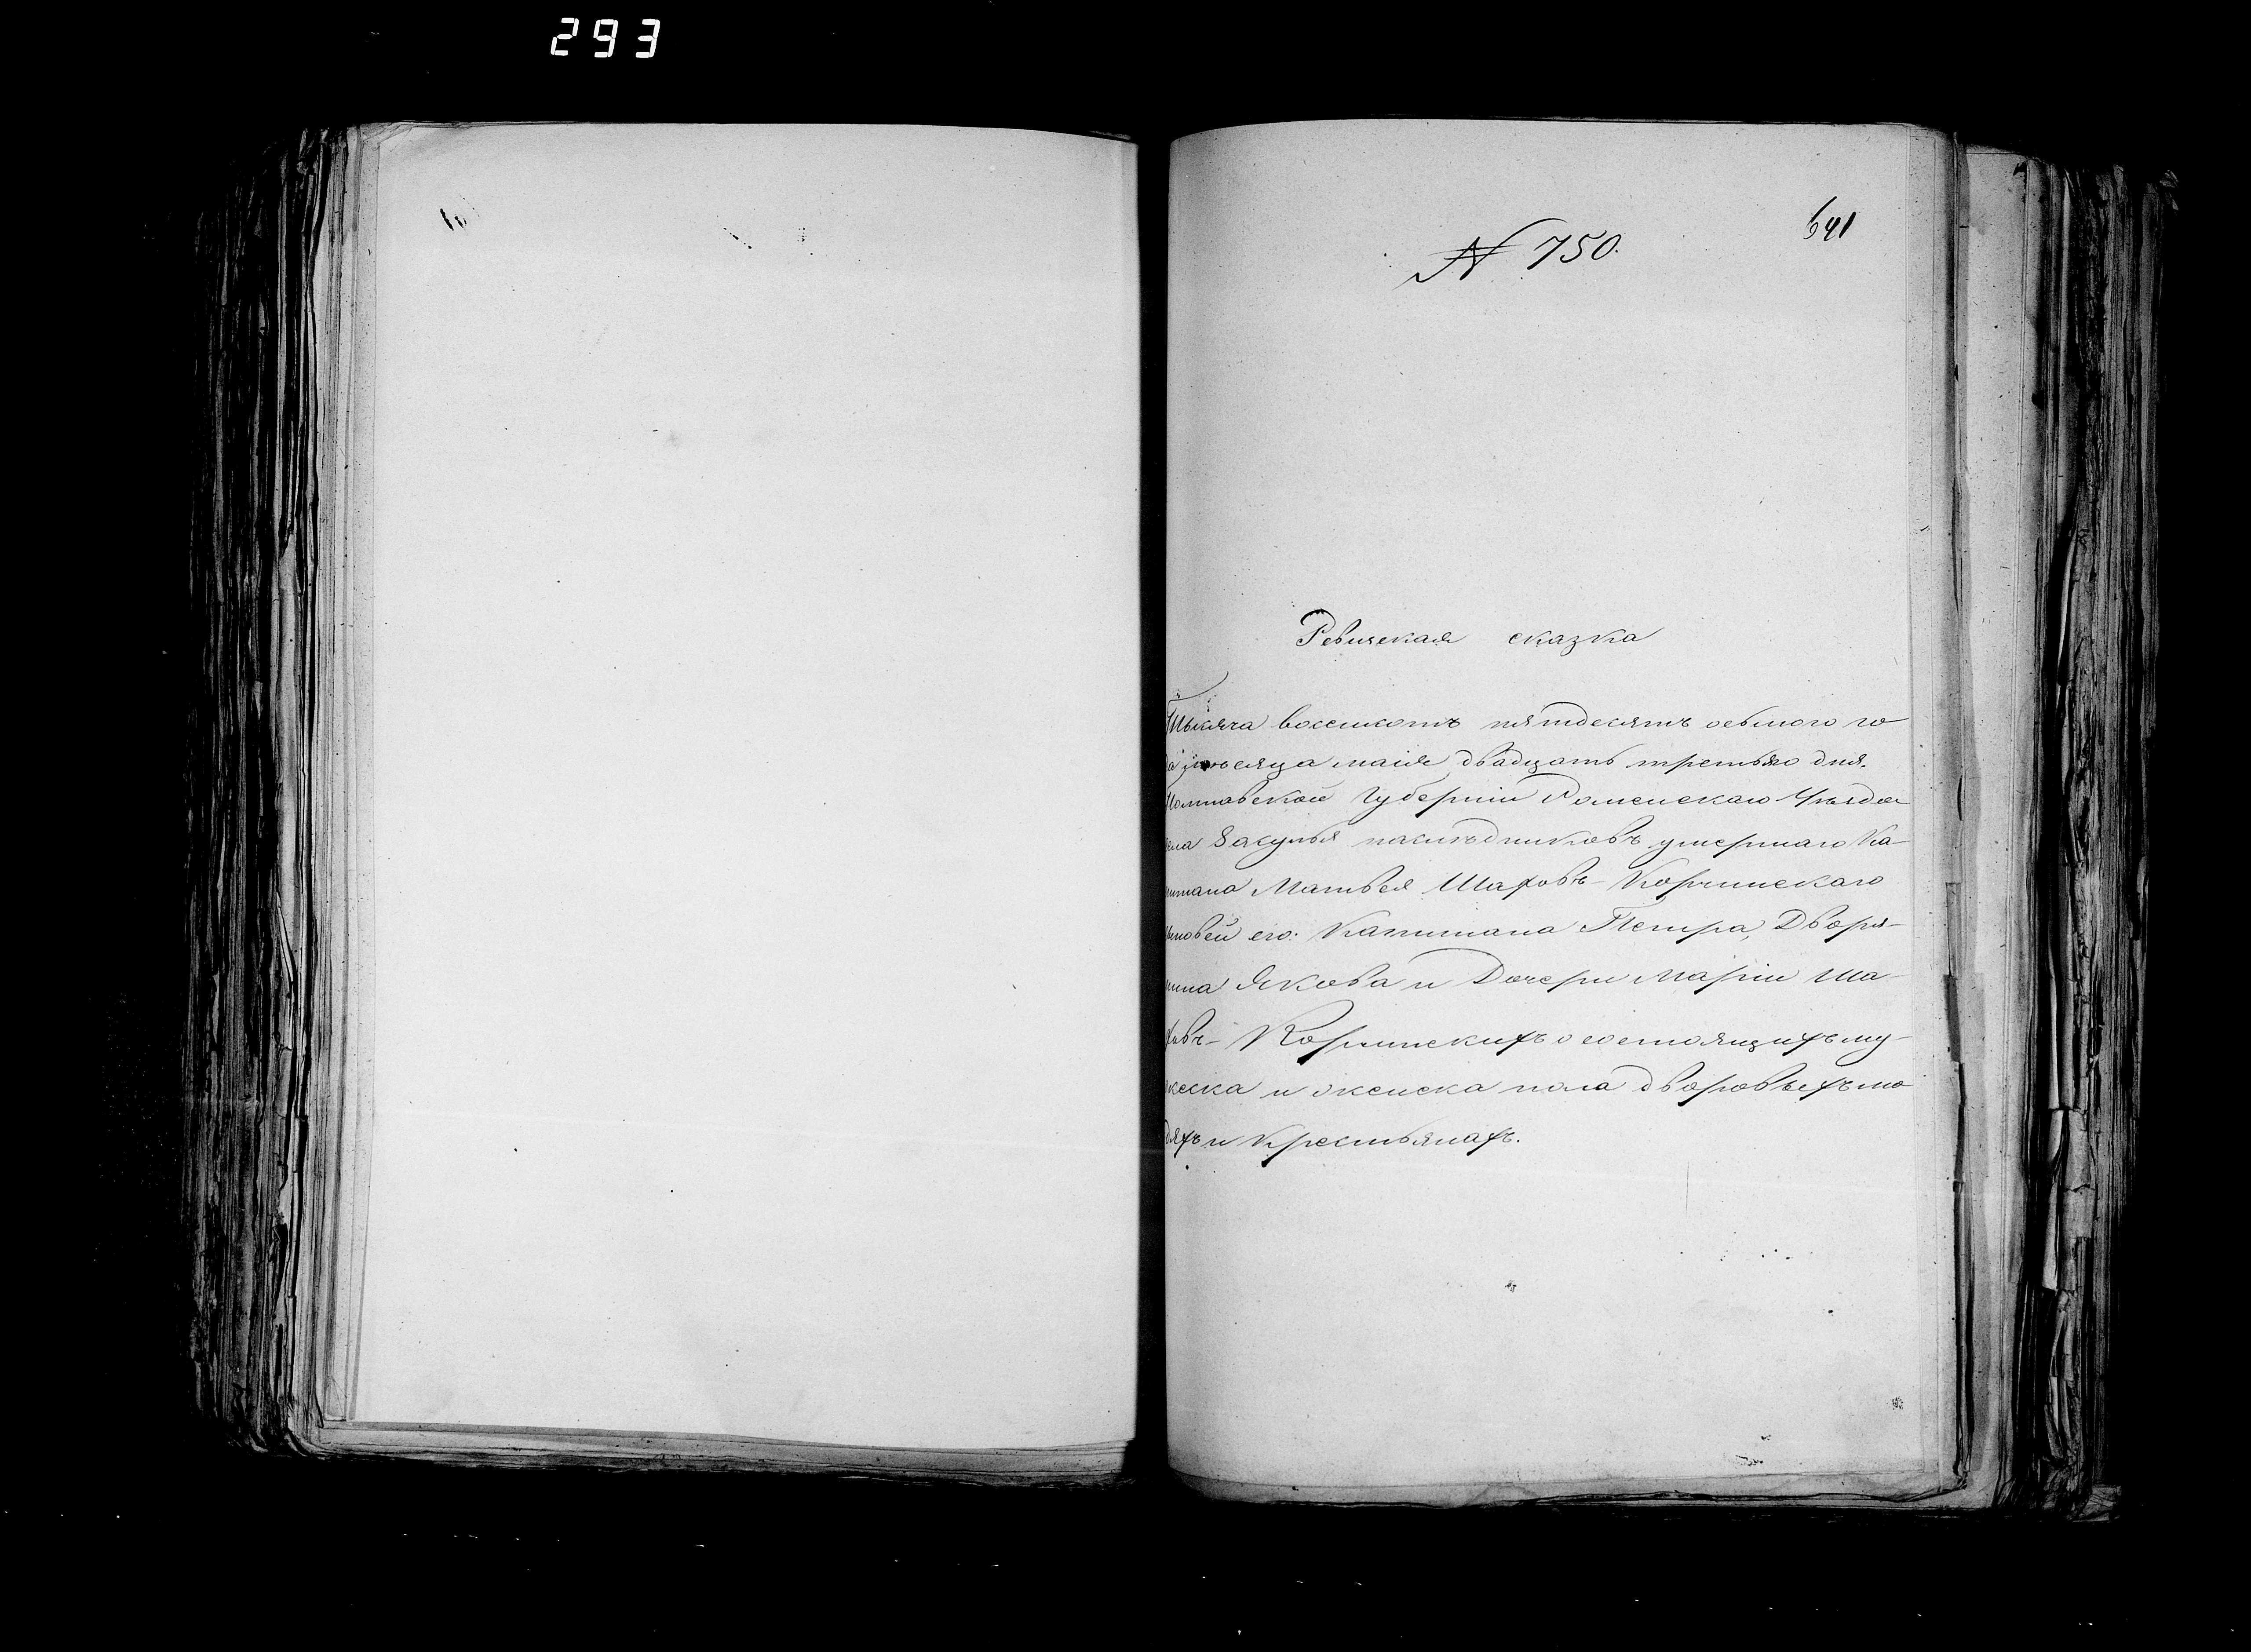 293
641
№ 750.
Ревизская сказка
Тысяча восемсотъ пятдесятъ осьмого го
да мѣсяца маія двадцать третьяго дня.
Полтавской Губерніи Роменскаго Уѣзда
села Засулья наслѣдниковъ умершаго Ка-
питана Матвея Шаховъ-Корчинскаго
сыновей его: Капитана Петра, Дворя-
нина Якова и Дочери Маріи Ша-
ховъ-Корчинскихъ о состоящихъ му-
жеска и женска пола дворовыхъ лю
дяхъ и крестьянахъ.